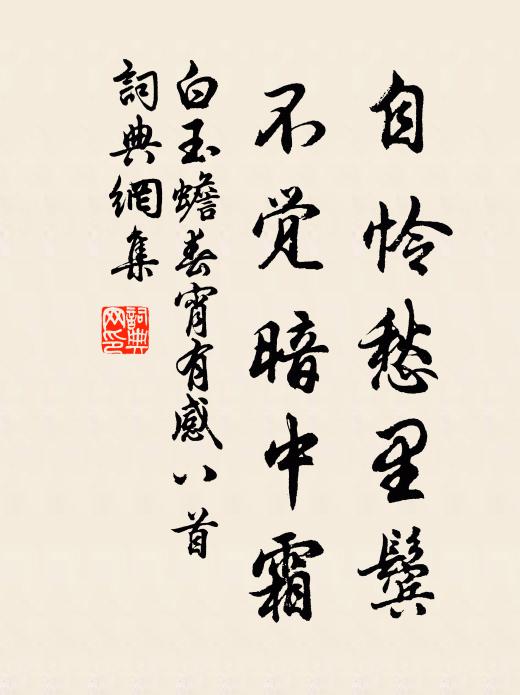 自怜愁里鬓
不觉暗中霜
白玉蟾春宵有感八首
詞典網集
詞典
网印